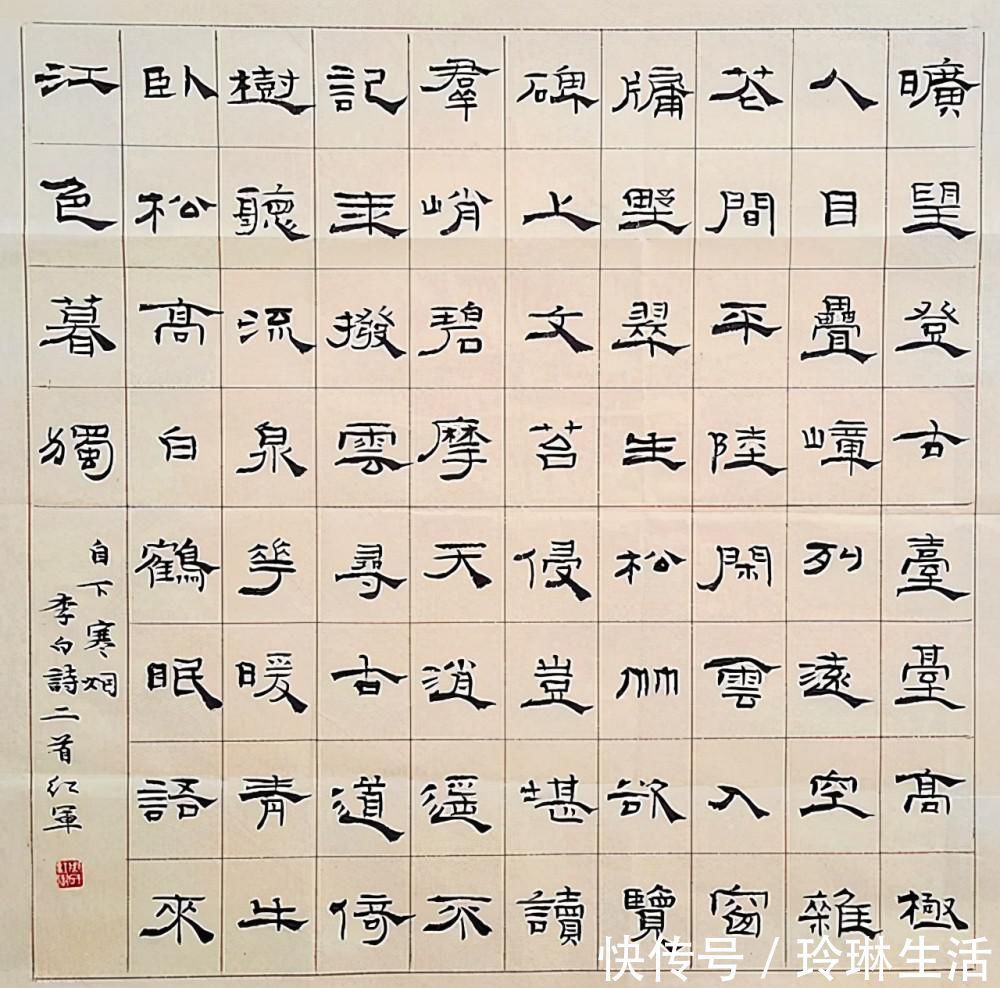 曠望登古臺臺高極
人目疊嶂列遠空雜
花間平陸閑雲入窗
牖野翠生松竹欲覽
碑上文苔侵豈堪讀
羣峭碧摩天逍遥不
記年撥雲尋古道倚
樹聽流泉花暖青牛
卧松高白鶴眠語來
江色暮獨
自下寒烟
李白詩二首紅軍
快传号/玲琳生活